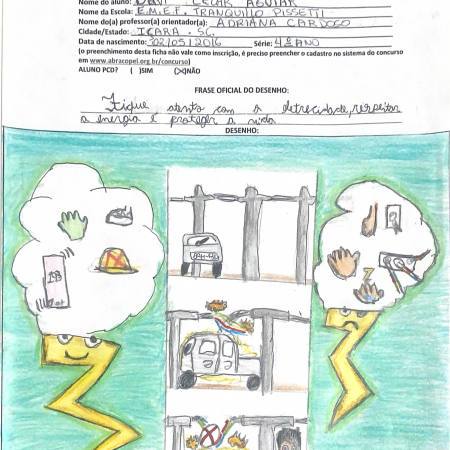 Nome do aluno: DAVI CESAR AGUIAR
Nome da Escola: E.M.E.F. TRANQUILLO PISSETTI
Nome do(a) professor(a) orientador(a): ADRIANA CARDOSO
Cidade/Estado: IÇARA - SC.
Data de nascimento: 02/05/2016 Série: 4º ANO
(o preenchimento desta ficha não vale como inscrição, é preciso preencher o cadastro no sistema do concurso
em www.abracopel.org.br/concurso)
ALUNO PCD? ( )SIM (X)NÃO
FRASE OFICIAL DO DESENHO:
Fique atento com a eletricidade, respeitar
a energia é proteger a vida
DESENHO: